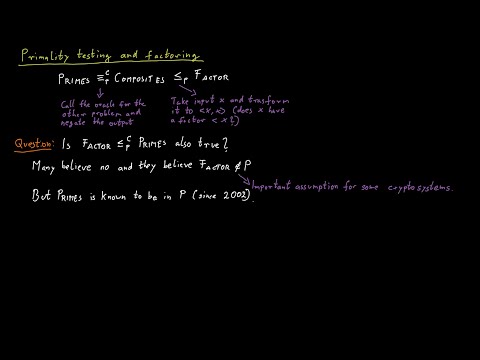 Primality testing and factoring
PRIMES ≡ᶜₚ COMPOSITES ≤ₚ FACTOR
Call the oracle for the
other problem and
negate the output
Take input x and transform
it to <x,x> (does x have
a factor < x?)
Question: Is FACTOR ≤ᶜₚ PRIMES also true?
Many believe no and they believe FACTOR ∉ P
Important assumption for some cryptosystems.
But PRIMES is known to be in P (since 2002).